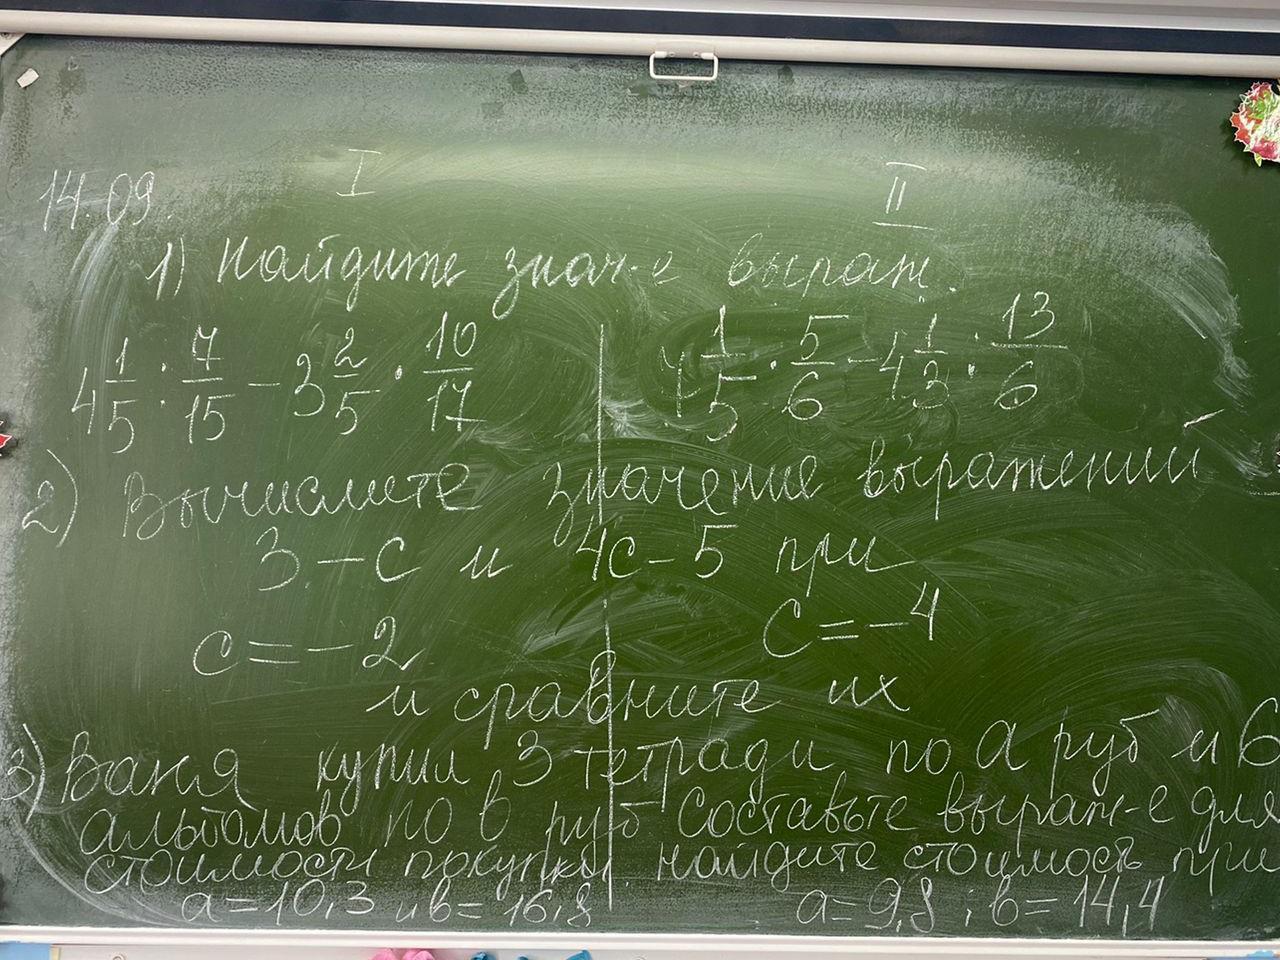 14.09. I II
1) Найдите знач-е выраж.
4 1/5 : 7/15 - 3 2/5 · 10/17 | 1/5 : 5/6 - 4 1/3 · 13/6
2) Вычислите значение выражений
3 - c и 4c - 5 при
c = -2 c = -4
и сравните их
3) Ваня купил 3 тетради по a руб и 6
альбомов по в руб Составьте выраж-е для
стоимости покупки. найдите стоимость при
a = 10,3 и в = 16,8 a = 9,8 ; в = 14,4